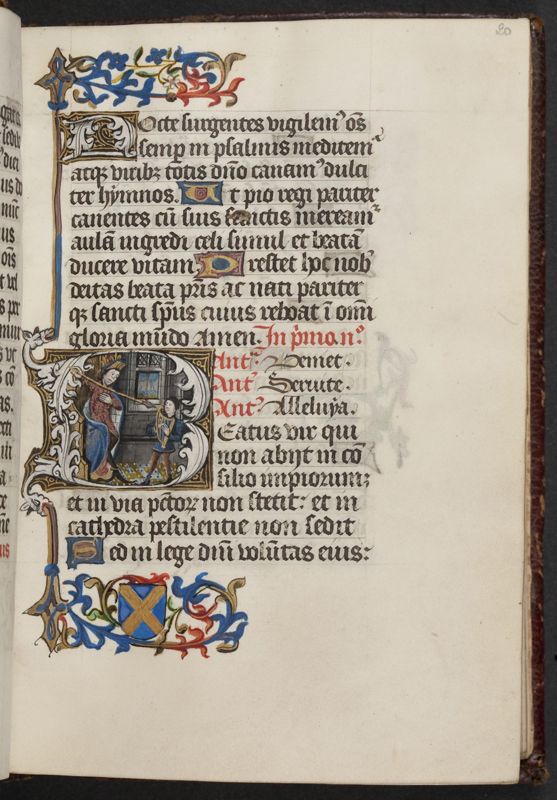 20
Nocte surgentes vigilem⁹ oē̄s
semp in psalmis meditem᷑
atqꝫ viribꝫ totis dn̄o canam⁹ dulci
ter hymnos. Et pio regi pariter
canentes cū suis sanctis meream᷑
aulā ingredi celi simul et beatā
ducere vitam. Prestet hoc nob̄
deitas beata pr̄is ac nati pariter
qꝫ sancti sp̄us cuius reboat ī omī
gloria mūdo Amen. In p̄mo. n⁰.
Ant᷑. Domet.
Ant᷑ Seruite.
Ant᷑ Alleluya.
Beatus vir qui
non abijt in cō
silio impiorum;
et in via pctōꝝ non stetit: et in
cathedra pestilentie non sedit
Sed in lege dn̄i volūtas eius: